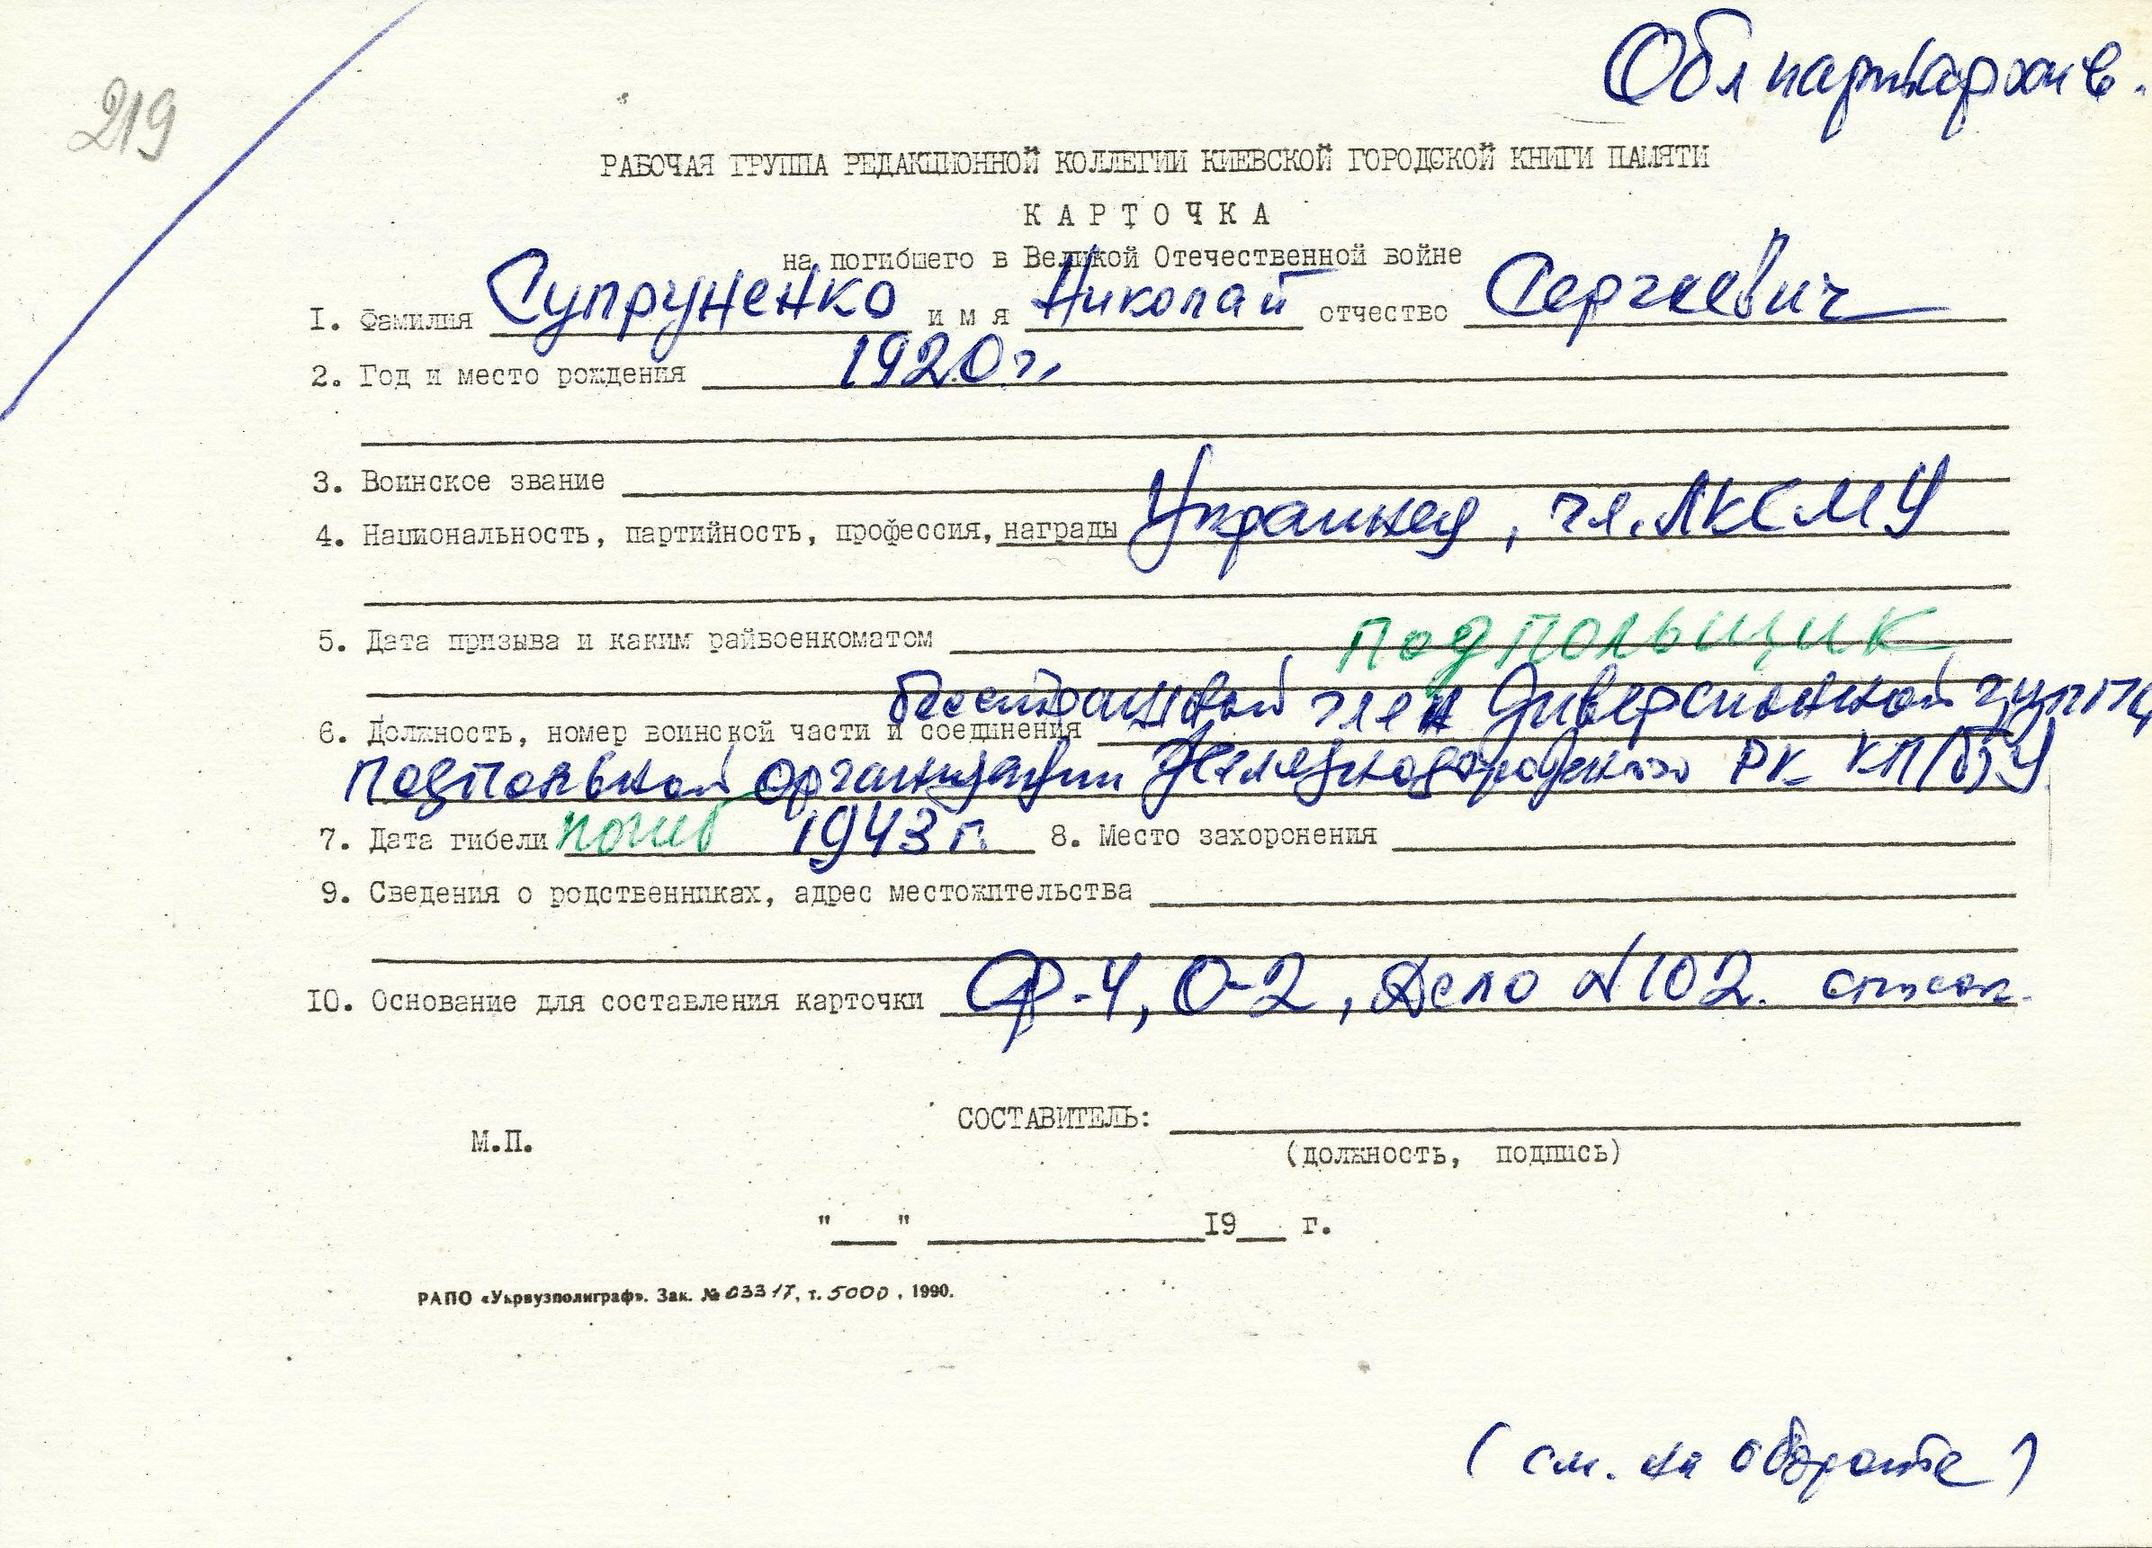 Облпартархив.
219
РАБОЧАЯ ГРУППА РЕДАКЦИОННОЙ КОЛЛЕГИИ КИЕВСКОЙ ГОРОДСКОЙ КНИГИ ПАМЯТИ
КАРТОЧКА
на погибшего в Великой Отечественной войне
I. Фамилия Супруненко имя Николай отчество Сергеевич
2. Год и место рождения 1920 г.
3. Воинское звание
4. Национальность, партийность, профессия, награды Украинец, чл. ЛКСМУ
5. Дата призыва и каким райвоенкоматом подпольщик
бесстрашный член диверсионной группы
6. Должность, номер воинской части и соединения
подпольной организации Железнодорожного РК КП(б)У.
7. Дата гибели погиб 1943 г. 8. Место захоронения
9. Сведения о родственниках, адрес местожительства
IO. Основание для составления карточки Ф-4, О-2, Дело №102. список.
СОСТАВИТЕЛЬ:
М.П.
(должность, подпись)
"___" ____________I9___ г.
РАПО «Укрвузполиграф». Зак. № 03317, т. 5000, 1990.
(см. на обороте)